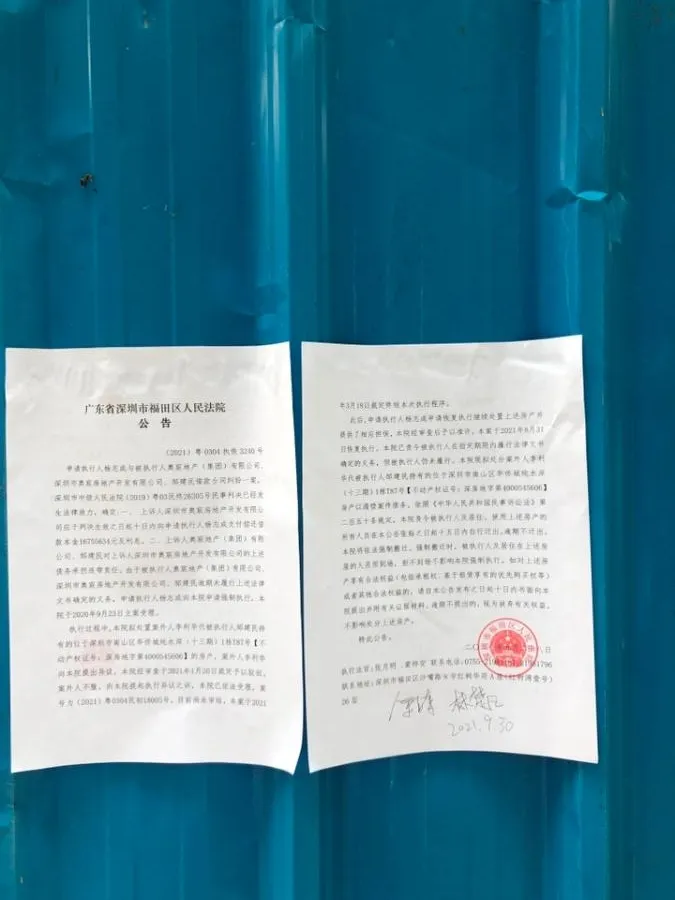 广东省深圳市福田区人民法院
公 告
（2021）粤0304执恢3240号
申请执行人杨志成与被执行人奥宸地产（集团）有限公司、
深圳市奥宸房地产开发有限公司、邹建民借款合同纠纷一案，
深圳市中级人民法院（2019）粤03民终26305号民事判决已经发
生法律效力，确定：一、上诉人深圳市奥宸房地产开发有限公
司应于判决生效之日起十日内向申请执行人杨志成支付偿还借
款本金16755634元及利息。二、上诉人奥宸地产（集团）有限
公司、邹建民对上诉人深圳市奥宸房地产开发有限公司的上述
债务承担连带责任。由于被执行人奥宸地产（集团）有限公司、
深圳市奥宸房地产开发有限公司、邹建民逾期未履行上述法律
文书确定的义务，申请执行人杨志成向本院申请强制执行，本
院于2020年9月23日立案受理。
执行过程中，本院拟处置案外人李利华代被执行人邹建民持
有的位于深圳市南山区华侨城纯水岸（十三期）1栋187号【不
动产权证号：深房地字第4000545606】的房产，案外人李利华
向本院提出异议，本院经审查于2021年1月20日裁定予以驳回，
案外人不服，向本院提起执行异议之诉，本院已依法受理，案
号为（2021）粤0304民初18005号，目前尚未审结，本案于2021
年3月18日裁定终结本次执行程序。
此后，申请执行人杨志成申请恢复执行继续处置上述房产并
提供了相应担保，本院经审查后予以准许，本案于2021年8月31
日恢复执行。本院已责令被执行人在指定期限内履行法律文书
确定的义务，但被执行人仍未履行。本院现拟处分案外人李利
华代被执行人邹建民持有的位于深圳市南山区华侨城纯水岸
（十三期）1栋187号【不动产权证号：深房地字第4000545606】
房产以清偿案件债务。依照《中华人民共和国民事诉讼法》第
二百五十条规定，本院责令被执行人及居住、使用上述房产的
所有人员在本公告张贴之日起十五日内自行迁出。逾期不迁出，
本院将依法强制搬迁。强制搬迁时，被执行人及居住在上述房
屋的人员须到场，拒不到场不影响本院强制执行。如对上述房
产享有合法权益（包括承租权、基于租赁享有的优先购买权等）
或者其他合法权益的，请自本公告发布之日起十日内以书面向本
院提出并附有关证据材料，逾期不提出的，视为放弃有关权益，
不影响处分上述房产。
特此公告。
二〇 八日
执行法官：
联系电话：0755-
联系地址：深圳市福田区沙嘴路8号红树华府A座（红树湾壹号）
26层
2021.9.30